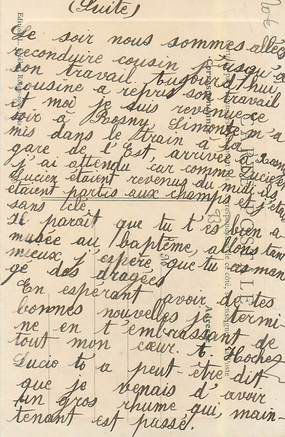 (Suite)
Ce soir nous sommes allés
reconduire cousin jusqu'à
son travail. Aujourd'hui
cousine a repris son travail
et moi je suis revenue ce
soir à Rosny. Simone m'a
mis dans le train à la
gare de l'Est, arrivée à
j'ai attendu car comme Lucie et
Lucien étaient revenus du midi ils
étaient partis aux champs et j'étais
sans clé.
Il paraît que tu t'es bien a-
musée au baptême, allons tant
mieux j'espère que tu as man-
gé des dragées
En espérant avoir de tes
bonnes nouvelles je termi-
ne en t'embrassant de
tout mon cœur. t. Hoche
Lucie t'a peut être dit
que je venais d'avoir
un gros rhume qui main-
tenant est passé.